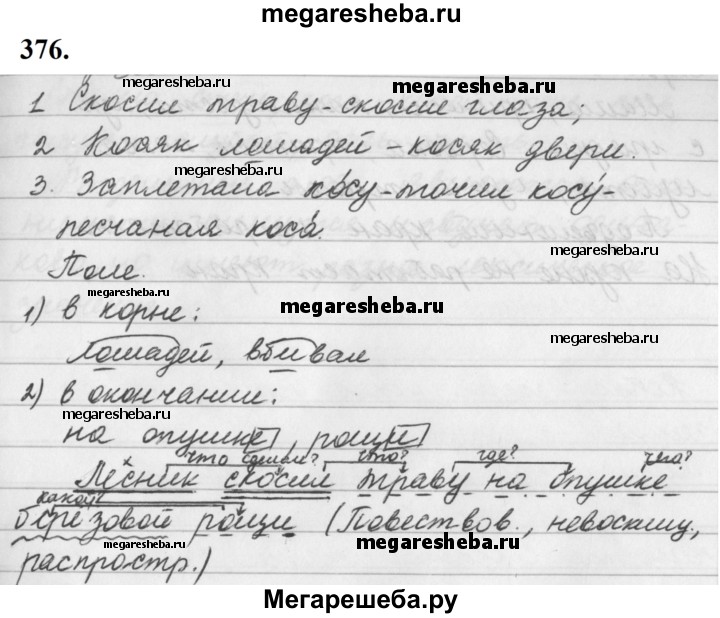 megaresheba.ru
376.
megaresheba.ru megaresheba.ru
1 Скосил траву - скосил глаза;
2 Косяк лошадей - косяк двери.
megaresheba.ru
3. Заплетала ко́су - точил косу́ -
песчаная коса́.
Поле.
megaresheba.ru megaresheba.ru
1) в корне:
megaresheba.ru
лошадей, вбивал
2) в окончании:
megaresheba.ru
на опушке, рощи
что сделал? что? где? чего?
Лесник скосил траву на опушке
какой
березовой рощи (Повествов., невосклиц,
megaresheba.ru megaresheba.ru
распростр.)
Мегарешеба.ру